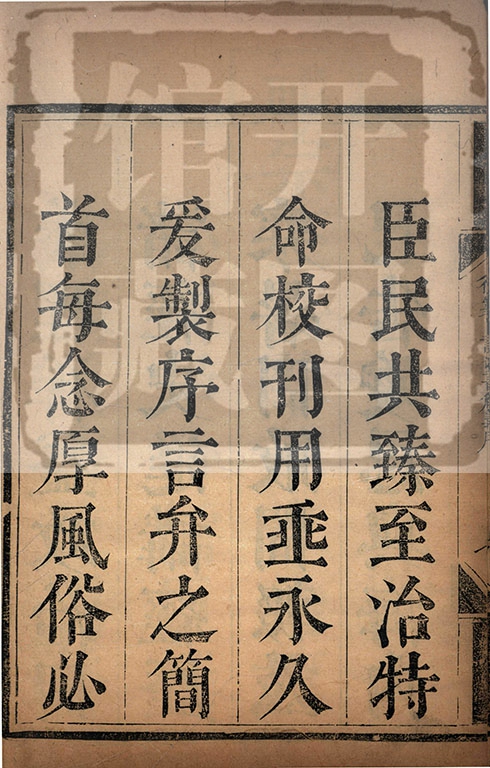 臣民共臻至治特
命校刊用垂永久
爰製序言弁之簡
首每念厚風俗必
开图
馆藏